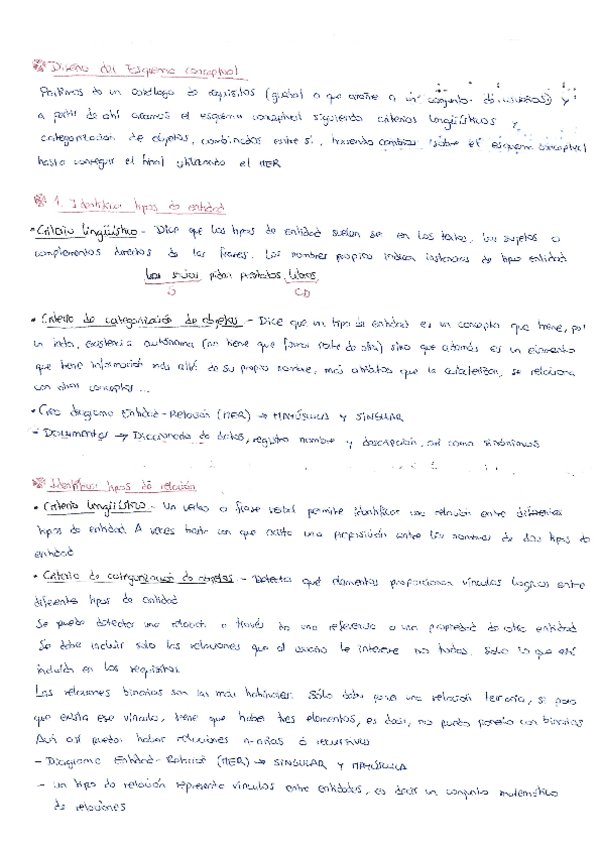 Diseño del Esquema conceptual
Partimos de un catálogo de requisitos (global o que atañe a un conjunto de usuarios) y
a partir de ahí creamos el esquema conceptual siguiendo criterios lingüísticos y
categorización de objetos, combinados entre sí, haciendo cambios sobre el esquema conceptual
hasta conseguir el final utilizando el MER
1. Identificar tipos de entidad
• Criterio lingüístico - Dice que los tipos de entidad suelen ser en los textos, los sujetos o
complementos directos de las frases. Los nombres propios indican instancias de tipos entidad
Los socios piden prestados libros
S CD
• Criterio de categorización de objetos - Dice que un tipo de entidad es un concepto que tiene, por
un lado, existencia autónoma (no tiene que formar parte de otro) sino que además es un elemento
que tiene información más allá de su propio nombre, más atributos que la caracterizan, se relaciona
con otros conceptos ...
• Creo diagrama Entidad-Relación (MER) → MAYÚSCULAS Y SINGULAR
- Documentar → Diccionario de datos, registra nombre y descripción, así como sinónimos
Identificar tipos de relación
• Criterio lingüístico - Un verbo o frase verbal permite identificar una relación entre diferentes
tipos de entidad. A veces basta con que exista una preposición entre los nombres de dos tipos de
entidad
• Criterio de categorización de objetos - Detectar qué elementos proporcionan vínculos lógicos entre
diferentes tipos de entidad
Se puede detectar una relación a través de una referencia o una propiedad de otra entidad
Se debe incluir solo las relaciones que al usuario le interese no todas. Solo lo que esté
incluido en los requisitos
Las relaciones binarias son las más habituales. Sólo debe haber una relación ternaria, si para
que exista ese vínculo, tiene que haber tres elementos, es decir, no puedo ponerlo con binarias
Aun así puede haber relaciones n-arias o recursivas
- Diagrama Entidad-Relación (MER) → SINGULAR Y MAYÚSCULA
- un tipo de relación representa vínculos entre entidades, es decir un conjunto matemático
de relaciones